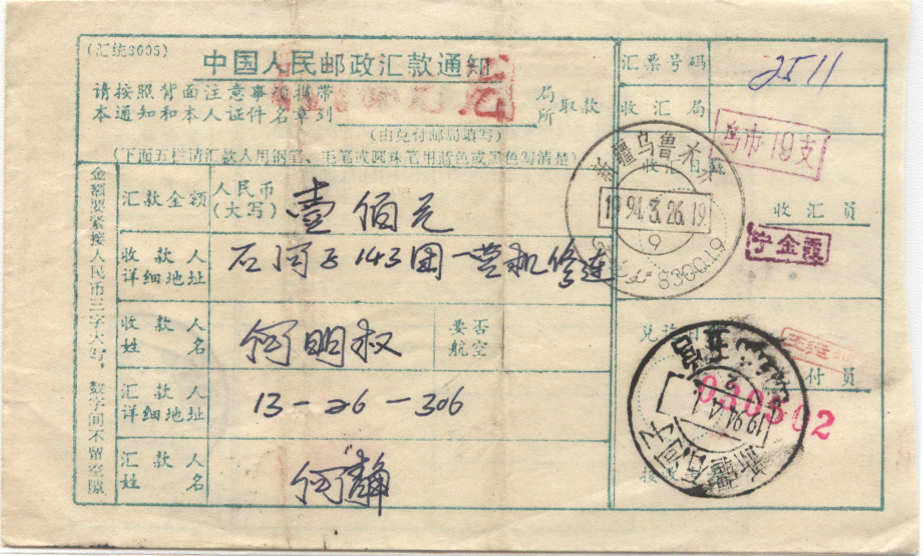 (汇统3005)
中国人民邮政汇款通知
请按照背面注意事项携带
本通知和本人证件名章到
局
所
取款
(由兑付邮局填写)
(下面五栏请汇款人用钢笔、毛笔或圆珠笔用蓝色或黑色写清楚)
金额要紧接人民币三字大写,数字间不留空隙
汇款金额
人民币
(大写)
壹佰元
收款人
详细地址
石河子143团一营机修连
收款人
姓名
何明权
要否
航空
汇款人
详细地址
13-26-306
汇款人
姓名
何静
汇票号码
2511
收汇局
乌市19支
新疆乌鲁木齐
1994.3.26.19
9
830019
收汇员
宁金霞
兑
付员
新疆石河子
1994.4.1
030302